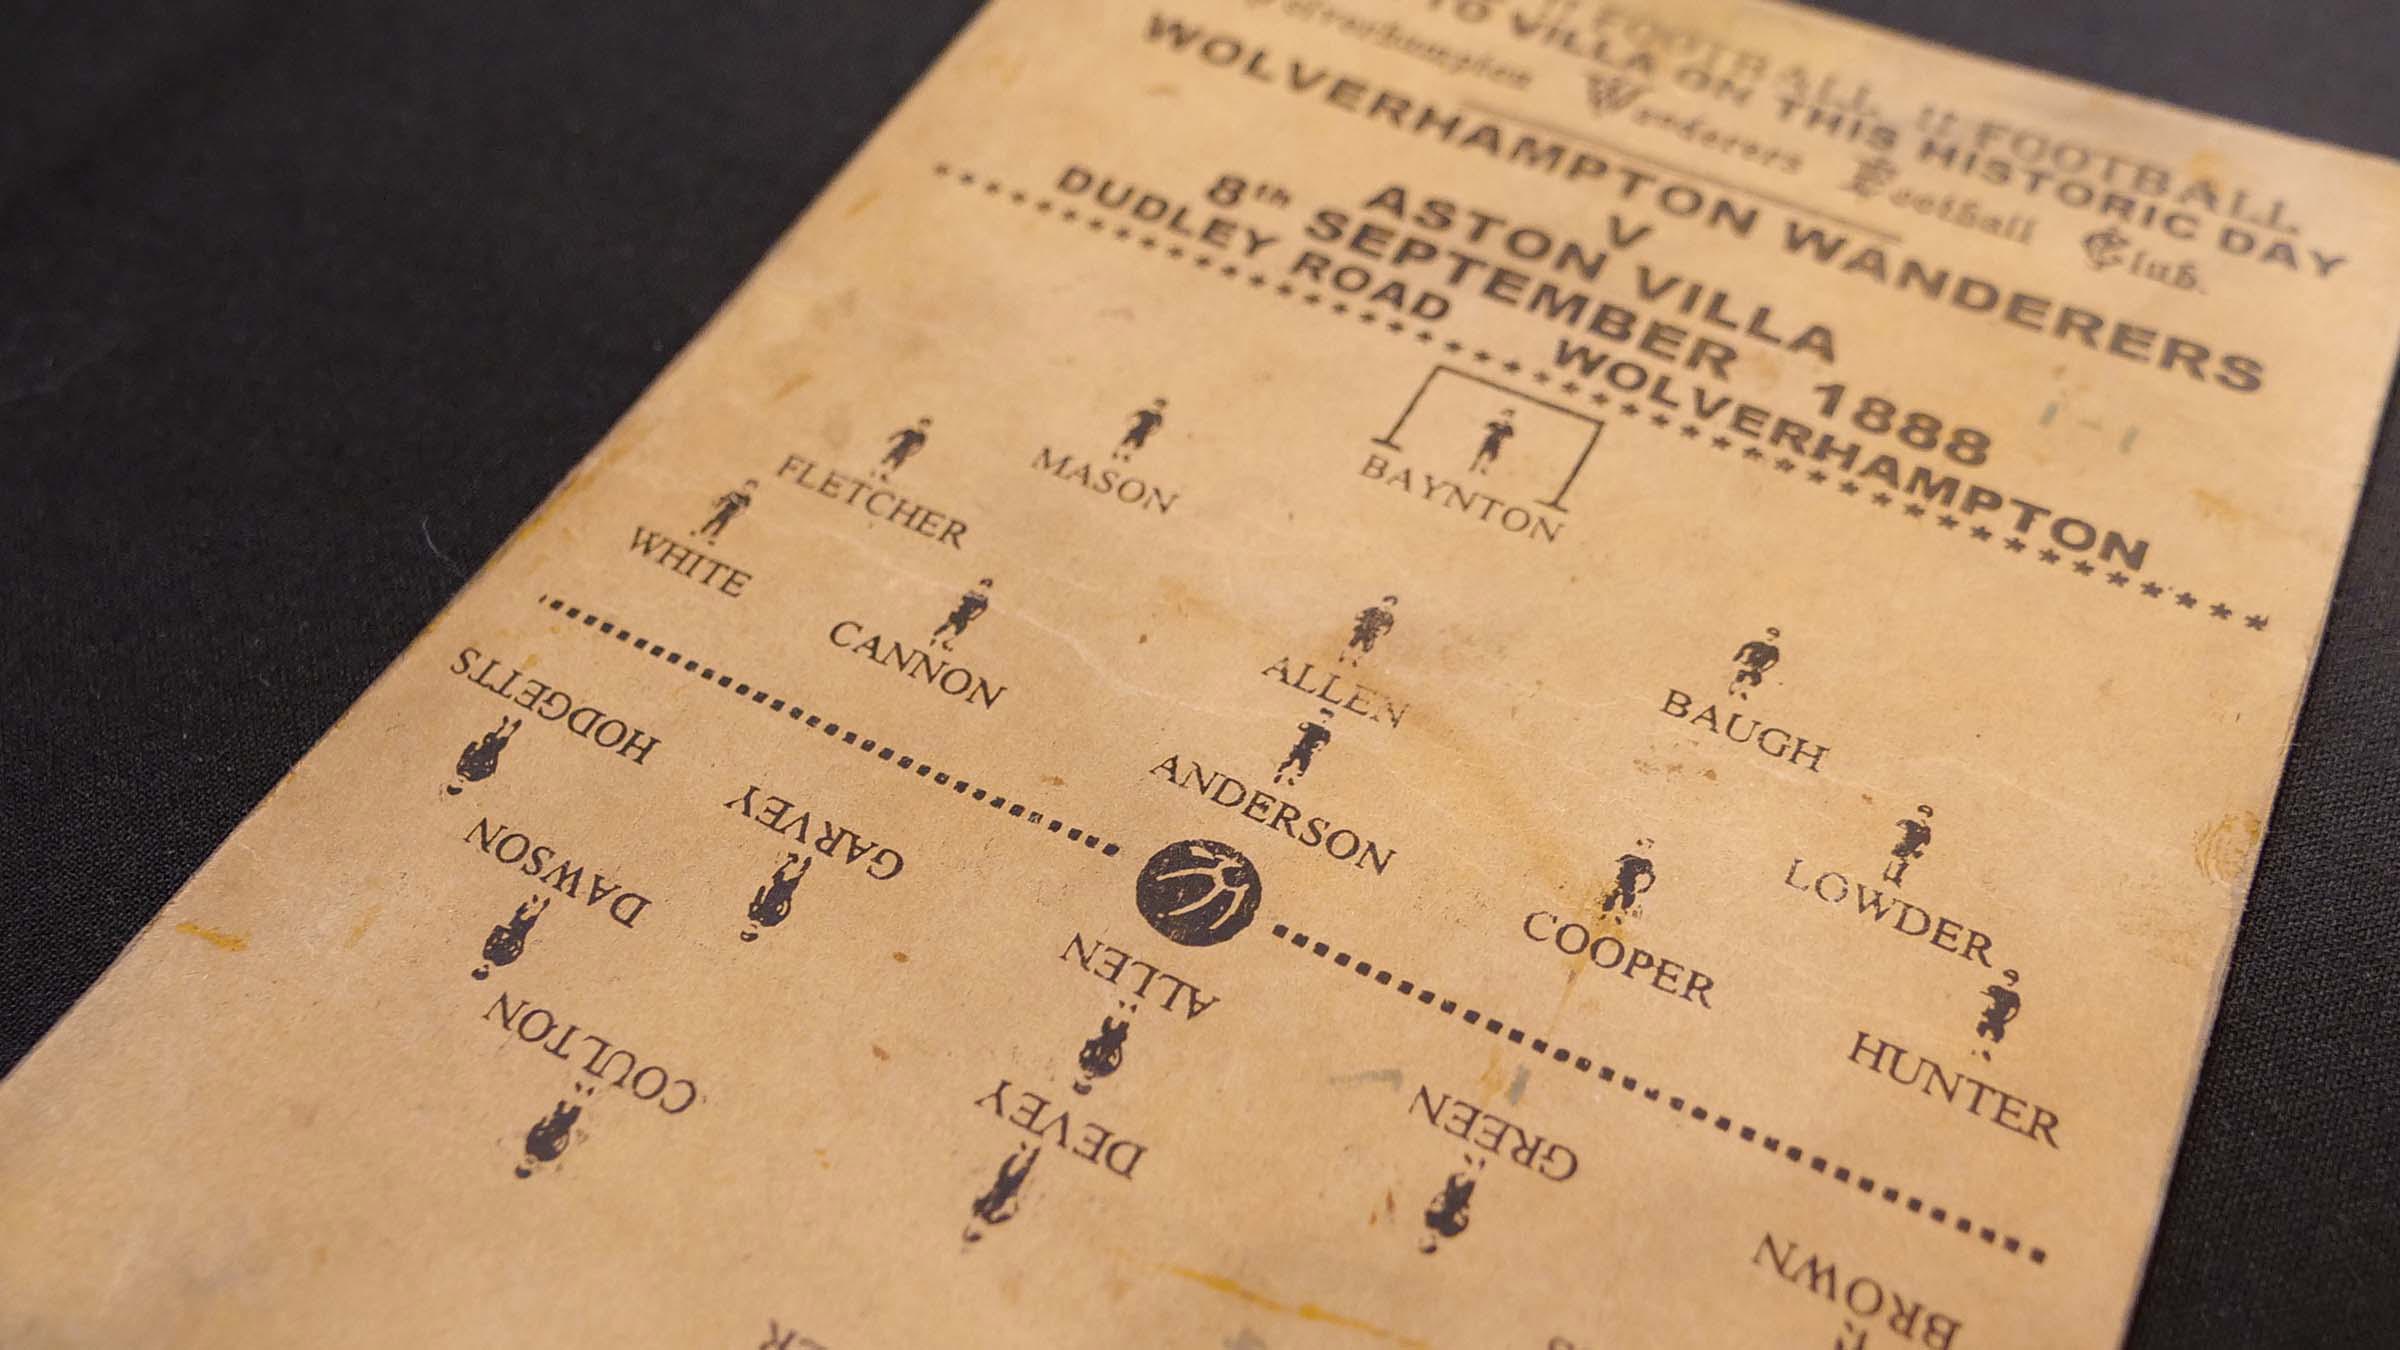 FOOTBALL !! FOOTBALL
TO VILLA ON THIS HISTORIC DAY
Wolverhampton Wanderers Football Club.
WOLVERHAMPTON WANDERERS
V
ASTON VILLA
8th SEPTEMBER 1888
DUDLEY ROAD WOLVERHAMPTON
BAYNTON
MASON
BAUGH
FLETCHER
ALLEN
LOWDER
WHITE
CANNON
ANDERSON
COOPER
HUNTER
HODGETTS
GARVEY
ALLEN
GREEN
BROWN
DAWSON
DEVEY
COULTON